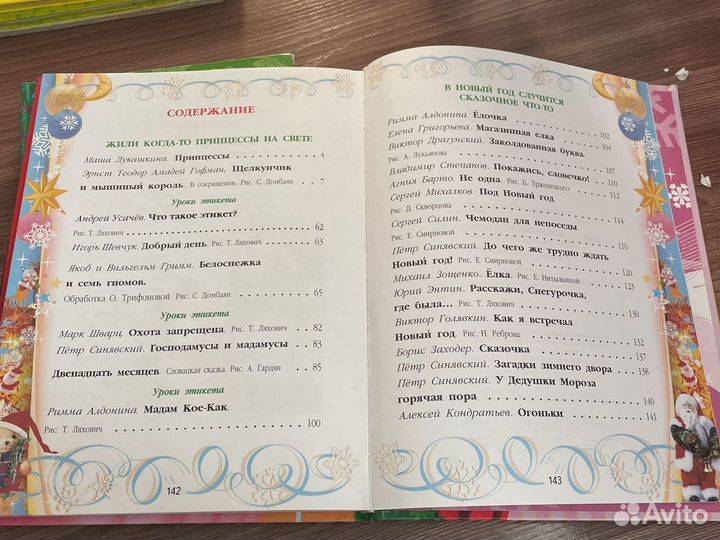 СОДЕРЖАНИЕ
ЖИЛИ КОГДА-ТО ПРИНЦЕССЫ НА СВЕТЕ
Маша Лукашкина. Принцессы 4
Эрнст Теодор Амадей Гофман. Щелкунчик
и мышиный король. В сокращении. Рис. С. Домбаян 7
Уроки этикета
Андрей Усачёв. Что такое этикет?
Рис. Т. Ляхович 62
Игорь Шевчук. Добрый день. Рис. Т. Ляхович 63
Якоб и Вильгельм Гримм. Белоснежка
и семь гномов.
Обработка О. Трифоновой. Рис. С. Домбаян 65
Уроки этикета
Марк Шварц. Охота запрещена. Рис. Т. Ляхович 82
Пётр Синявский. Господамусы и мадамусы 83
Двенадцать месяцев. Словацкая сказка. Рис. А. Гардян 85
Уроки этикета
Римма Алдонина. Мадам Кое-Как.
Рис. Т. Ляхович 100
142
В НОВЫЙ ГОД СЛУЧИТСЯ
СКАЗОЧНОЕ ЧТО-ТО
Римма Алдонина. Ёлочка
Елена Григорьева. Магазинная ёлка 102
Виктор Драгунский. Заколдованная буква. 104
Рис. А. Лукьянова
Владимир Степанов. Покажись, словечко! 107
Агния Барто. Не одна. Рис. Б. Тржемецкого 110
Сергей Михалков. Под Новый год.
Рис. Д. Скворцова 114
Сергей Силин. Чемодан для непоседы
Рис. Е. Смирновой 116
Пётр Синявский. До чего же трудно ждать
Новый год! Рис. Е. Смирновой 120
Михаил Зощенко. Ёлка. Рис. Е. Нитылкиной 123
Юрий Энтин. Расскажи, Снегурочка,
где была... Рис. Т. Ляхович 130
Виктор Голявкин. Как я встречал
Новый год. Рис. Н. Реброва 132
Борис Заходер. Сказочка 137
Пётр Синявский. Загадки зимнего двора 138
Пётр Синявский. У Дедушки Мороза
горячая пора 140
Алексей Кондратьев. Огоньки 141
143
Avito